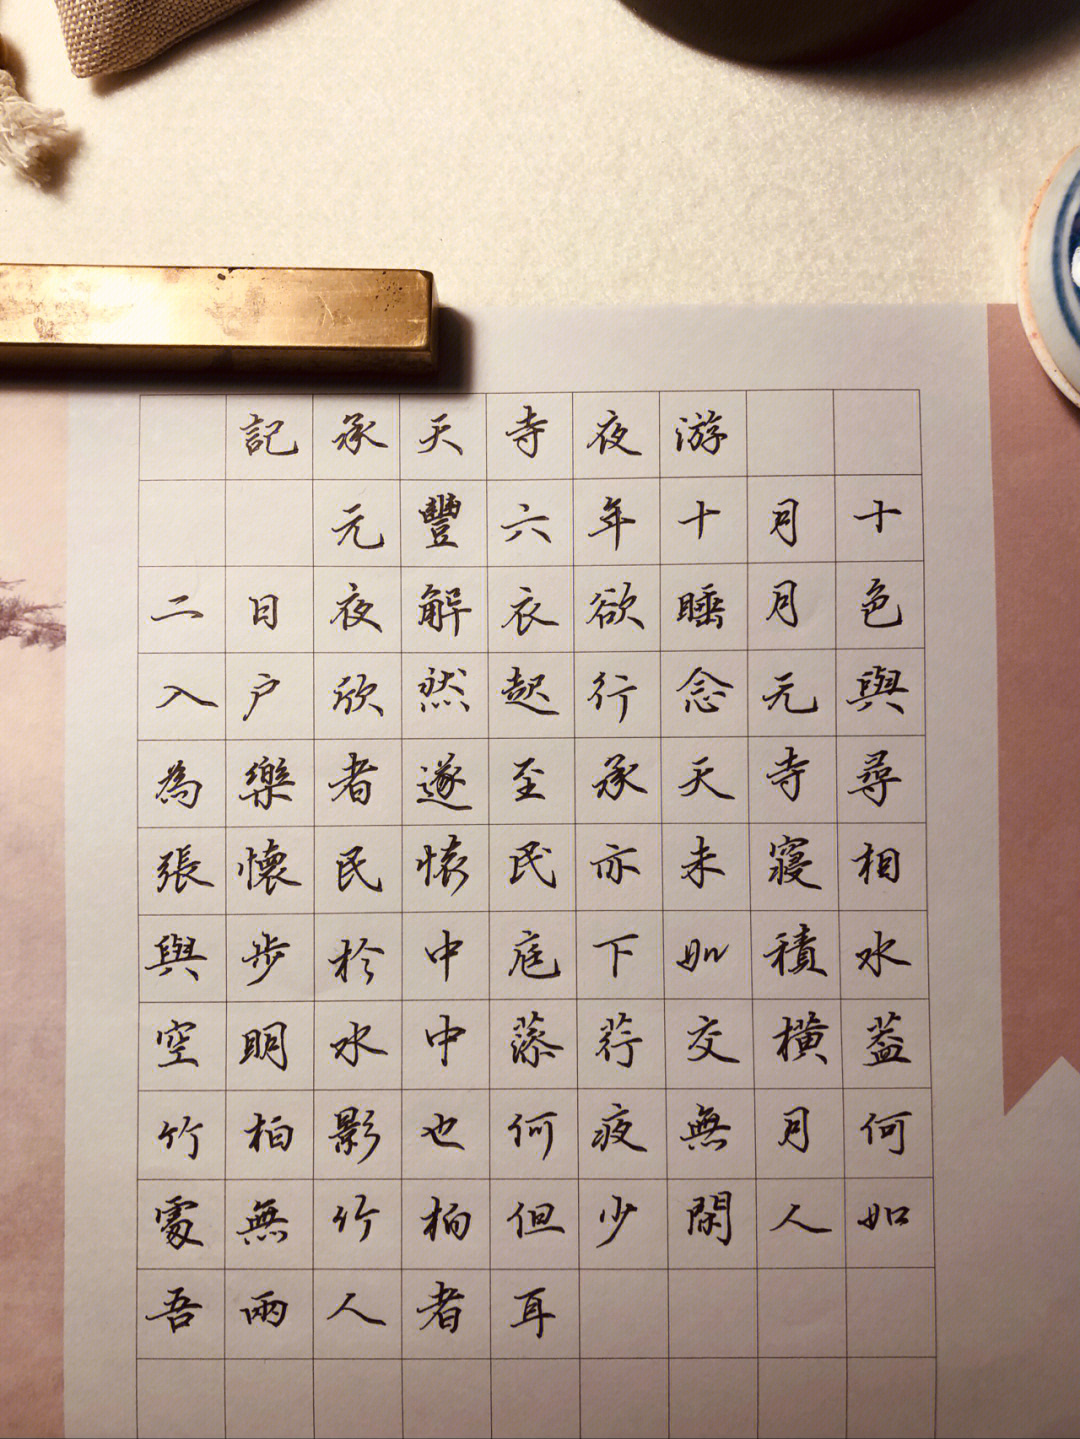 記承天寺夜游
元豐六年十月十
二日夜解衣欲睡月色
入户欣然起行念无與
為樂者遂至承天寺尋
張懷民懷民亦未寢相
與步於中庭下如積水
空明水中藻荇交橫蓋
竹柏影也何夜無月何
處無竹柏但少閑人如
吾兩人者耳